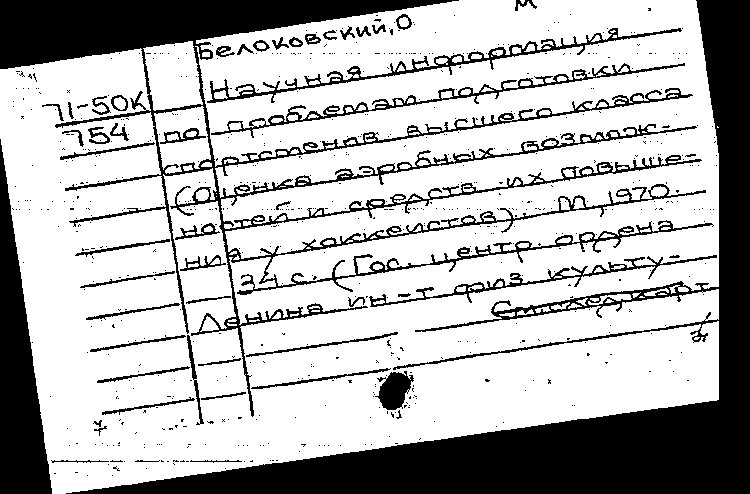 М
Белоковский, О
71-50К
754
Научная информация
по проблемам подготовки
спортсменов высшего класса
(Оценка аэробных возмож-
ностей и средств их повыше-
ния у хоккеистов). М, 1970.
34 с. (Гос. центр. ордена
Ленина ин-т физ культу-
См. след. карт